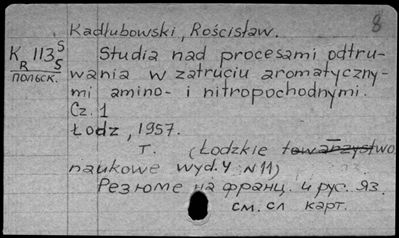 Kadłubowski, Rościsław. 8
K R 113 5/5
польск.
Studia nad procesami odtru-
wania w zatruciu aromatyczny-
mi amino- i nitropochodnymi.
Cz. 1
Łodz, 1957.
T. (Łodzkie towarzystwo
naukowe wyd. 4 N 11)
Резюме на франц. и рус. яз.
см. сл карт.